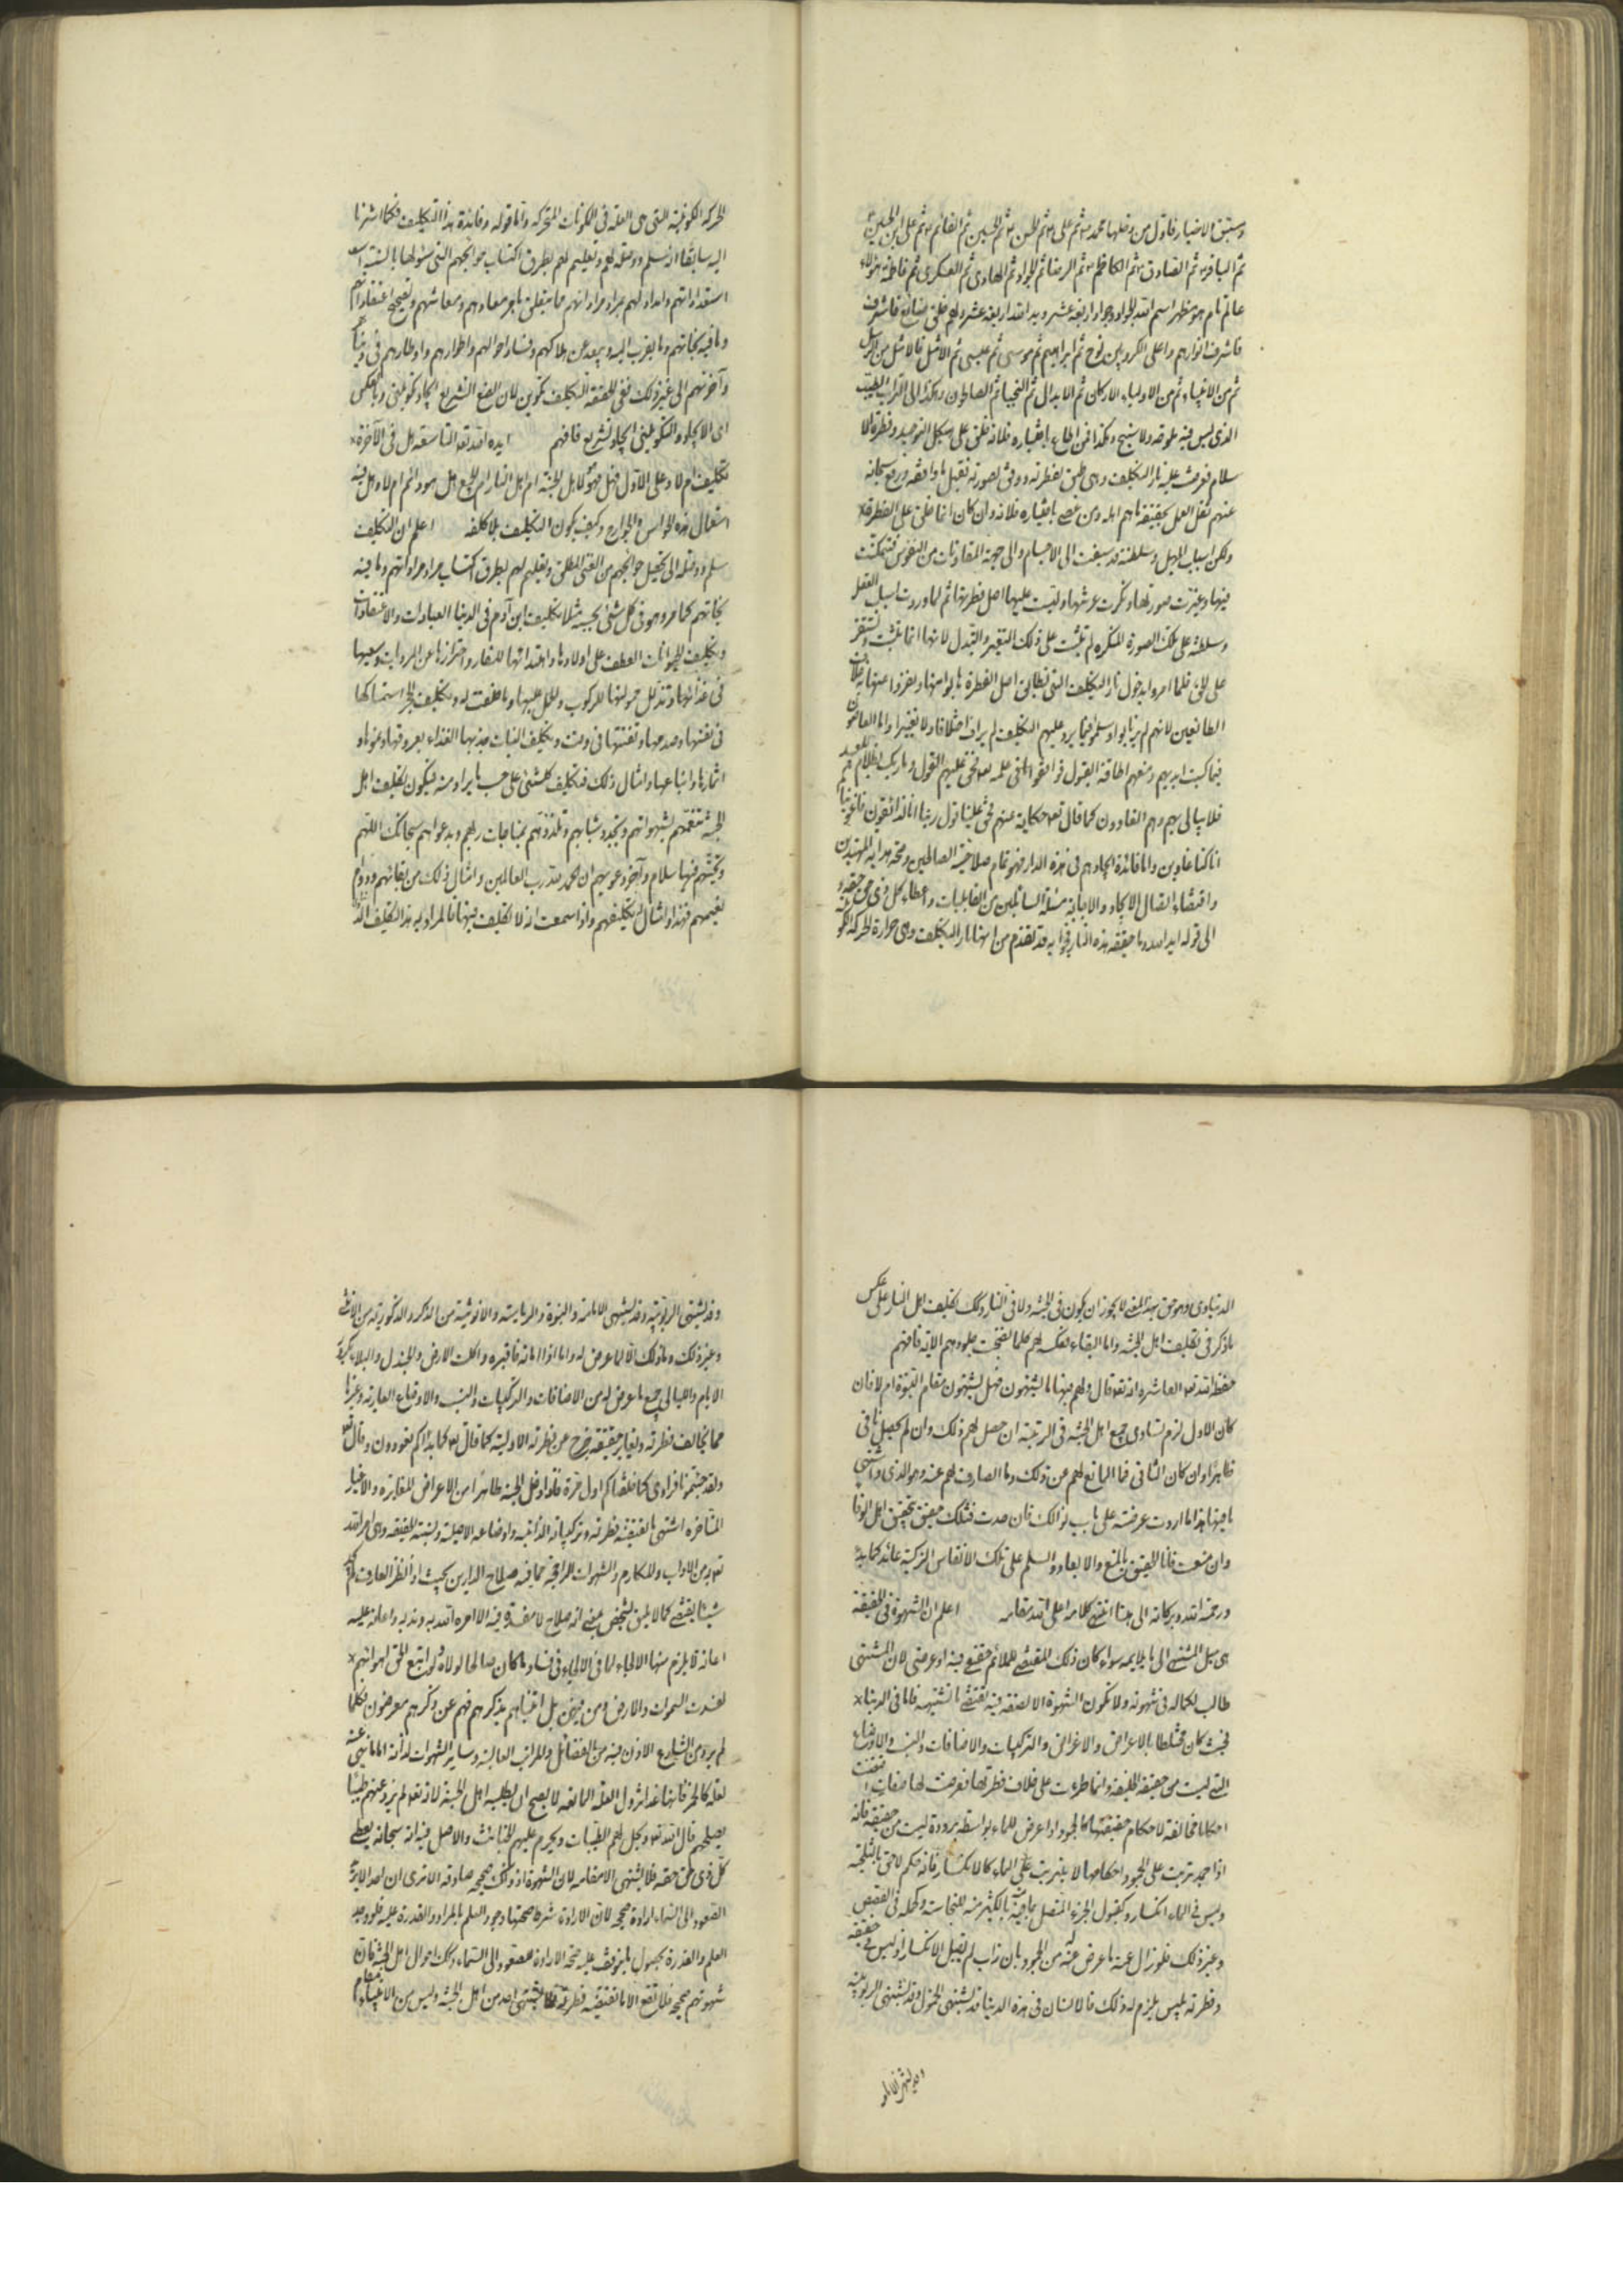 وسبق الاختيار فاول من دخلها محمد ثم علي ثم الحسن ثم الحسين ثم القائم ثم علي ابن الحسين
ثم الباقر ثم الصادق ثم الكاظم ثم الرضا ثم الجواد ثم الهادي ثم العسكري ثم فاطمة هؤلاء
عالم تام هو مظهر اسم الله الجواد
فاشرف انوارهم واعلى الكروبين نوح ثم ابراهيم ثم موسى ثم عيسى ثم الامثل فالامثل من الرسل
ثم من الانبياء ثم من الاولياء الاركان ثم الابدال ثم النجباء ثم الصالحون وهكذا الى التراب الطيب
الذي ليس فيه ملوحة ولا سبخ وهكذا فمن اطاع باختياره فلانه خلق على هيكل التوحيد وفطرة الا
سلام فعرضت عليه نار التكليف وهي طبق لفطرته ووفق لصورته تقبل ما وافقه ورفع سبحانه
عنهم ثقل العمل بحقيقة ما هم اهله ومن عصى باختياره فلانه وان كان انما خلق على الفطرة
ولكن اسباب الجهل وسلطنته قد سبقت الى الاجسام والى جهة المقارنات من النفوس فتمكنت
فيها وغيرت صورتها ونكرت عرشها وليست عليها اصل فطرتها ثم لما وردت اسباب العقل
وسلطنته على تلك الصورة المنكرة لم تثبت على ذلك التغيير والتبدل لانها انما تثبت وتستقر
على الحق فلما امروا بدخول نار التكليف التي تطابق اصل الفطرة هابوا منها ونفروا عنها بخلاف
الطائعين لانهم لم يرتابوا وسلموا فيما يرد عليهم التكليف لم يرد اختلافا ولا تغييرا واما العاصون
فبما كسبت ايديهم ومنعهم اطاقة القبول فوافقوا ما في علمه تعالى فحق عليهم القول وما ربك بظلام للعبيد
فلا يبالي بهم وهم الغاوون كما قال تعالى حكاية عنهم فحق علينا قول ربنا انا لذائقون فاغويناكم
انا كنا غاوين واما فائدة ايجادهم في هذه الدار فهو تمام صلاح بنية الصالحين وصحة هداية المهتدين
واقتضاء اتصال الايجاد والاجابة مسئلة السائلين من القابليات واعطاء كل ذي حق حقه
الى قوله ايده الله وما حقيقة هذه النار فجوابه قد تقدم من انها نار التكليف وهي حرارة الحركة الكو
الحركة الكونية التي هي العلة في المكونات المتحركة واما قوله وفائدة هذا التكليف فكما اشرنا
اليه سابقا انه سلم ووصلة لهم وتعليم لهم بطرق اكتساب حوائجهم التي سئلوها بالسنة
استعداداتهم وامداد لهم بمراد مراداتهم مما يتعلق بامر معادهم ومعاشهم وتصحيح اعتقاداتهم
وما فيه نجاتهم وما يقرب اليه ويبعد عن هلاكهم وفساد احوالهم واطوارهم واوطارهم في دنياهم
وآخرتهم الى غير ذلك ففي الحقيقة التكليف تكوين لان الصنع التشريعي ايجاد تكويني وبالعكس
اي الايجاد والتكويني ايجاد تشريع فافهم ايده الله تعالى التاسعة هل في الآخرة
تكليف ام لا وعلى الاول فهل هو لاهل الجنة ام اهل النار ام للجميع وهل هو دائم ام لا وهل فيه
استعمال هذه الحواس والجوارح وكيف يكون التكليف بلا كلفة اعلم ان التكليف
سلم ووصلة الى تحصيل حوائجهم من الغني المطلق وتعليم لهم بطرق اكتساب مراد مراداتهم وما فيه
نجاتهم كما مر وهو في كل شيء بحسبه مثلا تكليف ابن آدم في الدنيا العبادات والاعتقادات
وتكليف الحيوانات العطف على اولادها واهتدائها للمضار واحترازها عن المرديات وسعيها
في غذائها وتذلل حمولتها للركوب والحمل عليها وما خلقت له وتكليف الحجر استمساكها
في نفسها وصدمها وتفتتها في وقت وتكليف النبات جذبها الغذاء بعروقها ونموها و
اثمارها واتباعها وامثال ذلك فتكليف كل شيء على حسب ما يراد منه فيكون تكليف اهل
الجنة تنعمهم بشهواتهم وتجدد شبابهم وتلذذهم بمناجات ربهم ودعواهم سبحانك اللهم
وتحيتهم فيها سلام وآخر دعويهم ان الحمد لله رب العالمين وامثال ذلك من بقائهم ودوام
نعيمهم فهذا وامثاله تكليفهم واذا سمعت انه لا تكليف فيها فالمراد به هذا التكليف الد
الدنياوي وهو حق بهذا المعنى لا يجوز ان يكون في الجنة ولا في النار وكذلك تكليف اهل النار على عكس
ما ذكر في تكليف اهل الجنة واما البقاء فكل لهم كلما نضجت جلودهم الآية فافهم
حفظه الله تعالى العاشرة انه تعالى قال ولهم فيها ما يشتهون فهل يشتهون مقام النبوة ام لا فان
كان الاول لزم تساوي جميع اهل الجنة في الرتبة ان حصل لهم ذلك وان لم يحصل نافى
ظاهرا وان كان الثاني فما المانع لهم من ذلك وما الصارف لهم عنه وهو الذي واشتهى
ما فيها هذا ما اردت عرضه على باب نوالك فان جدت فمثلك حقيق بتحقيق اهل الوفا
وان منعت فانا الحقيق بالمنع والابعاد والسلام على تلك الانفاس الزكية عائد كما بدء
ورحمة الله وبركاته الى هنا انتهى كلامه اعلى الله مقامه اعلم ان الشهوة في الحقيقة
هي ميل المشتهي الى ما يلايمه سواء كان ذلك المقتضي للملائم حقيقي فيه او عرضي لان المشتهي
طالب لكماله في شهوته ولا تكون الشهوة الا لصفة فيه تقتضي ما تشتهيه فاما في الدنيا
فحيث كان مختلطا بالاعراض والاغراض والتركيبات والاضافات والنسب والاوضاع
التي ليست من حقيقة الخليقة وانما طرءت على خلاف فطرتها فعرضت لها صفات اقتضت
احكاما مخالفة لاحكام حقيقتها كالجمود اذا عرض للماء بواسطة برودة ليست من حقيقته فانه
اذا جمد ترتبت على الجمود احكامها لا يترتب على الماء كالانكسار فانه حكم لاحق بالثلجية
وليس في الماء انكسار وكقبول الجزء المتصل
وغير ذلك فلو زال عنه ما عرض عنه من الجمود بان ذاب لم يقبل الانكسار اذ ليس في حقيقته
وفطرته ما يلزم له ذلك فالانسان في هذه الدنيا قد يشتهي النزول وقد يشتهي الربوبية
وقد يشتهي الربوبية وقد يشتهي الامامة والنبوة والرياسة والانوثية من الذكر والذكورية من الانثى
وغير ذلك وما ذلك الا لما عرض له واما اذا اماته فاقبره واكلت الارض والجندل والبلاء بكرور
الايام والليالي جميع ما عرض له من الاضافات والتركيبات والنسب والاوضاع العارية وغيرها
مما يخالف فطرته ويغاير حقيقته خرج عن فطرته الاولية كما قال تعالى كما بداكم تعودون وقال تعالى
ولقد جئتمونا فرادى كما خلقناكم اول مرة فاذا دخل الجنة طاهرا من الاعراض المغايرة والاغيار
المتاخرة اشتهى ما تقتضيه فطرته وتركيباته الذاتية واوضاعه الاصلية ونسبته الحقيقية وهي ما امر الله
تعالى به من الآداب والمكارم والشهوات الراقية مما فيه صلاح الدارين بحيث اذا نظر العارف لم يجد
شيئا يقتضي كمالا لمن لشخص بمعنى انه صلاح لا مفسدة فيه الا امره الله به وندبه واعانه عليه
اعانة لا يلزم منها الالجاء لما في الالجاء في فساد ما كان صالحا لولاه ولو اتبع الحق اهوائهم
لفسدت السموات والارض ومن فيهن بل اتيناهم بذكرهم فهم عن ذكرهم معرضون فكلما
لم يرد من الشارع الاذن فيه من الفضائل والمراتب العالية وساير الشهوات لذاته اما ما نهى عنه
لعلة كالخمر فانها عند نزول العلة المانعة لا يصح ان يطلبه اهل الجنة لانه تعالى لم يزوعنهم طيبا
يصلحهم قال الله تعالى ويحل لهم الطيبات ويحرم عليهم الخبائث والاصل فيه انه سبحانه يعطي
كل ذي حق حقه فلا يشتهى الا مقامه لان الشهوة اذ ذاك صحيحة صادقة الا ترى ان احدا لا يريد
الصعود الى السماء ارادة صحيحة لان الارادة شرط صحتها وجود العلم بالمراد والقدرة عليه فلو وجد
العلم والقدرة بحصول ما يتوقف عليه صحة الارادة لصعود الى السماء وكذلك احوال اهل الجنة فان
شهوتهم صحيحة فلا تقع الا ما تقتضيه فطرته فلا يشتهي احد من اهل الجنة وليس من الانبياء مقام
وقد يشتهي الامامة